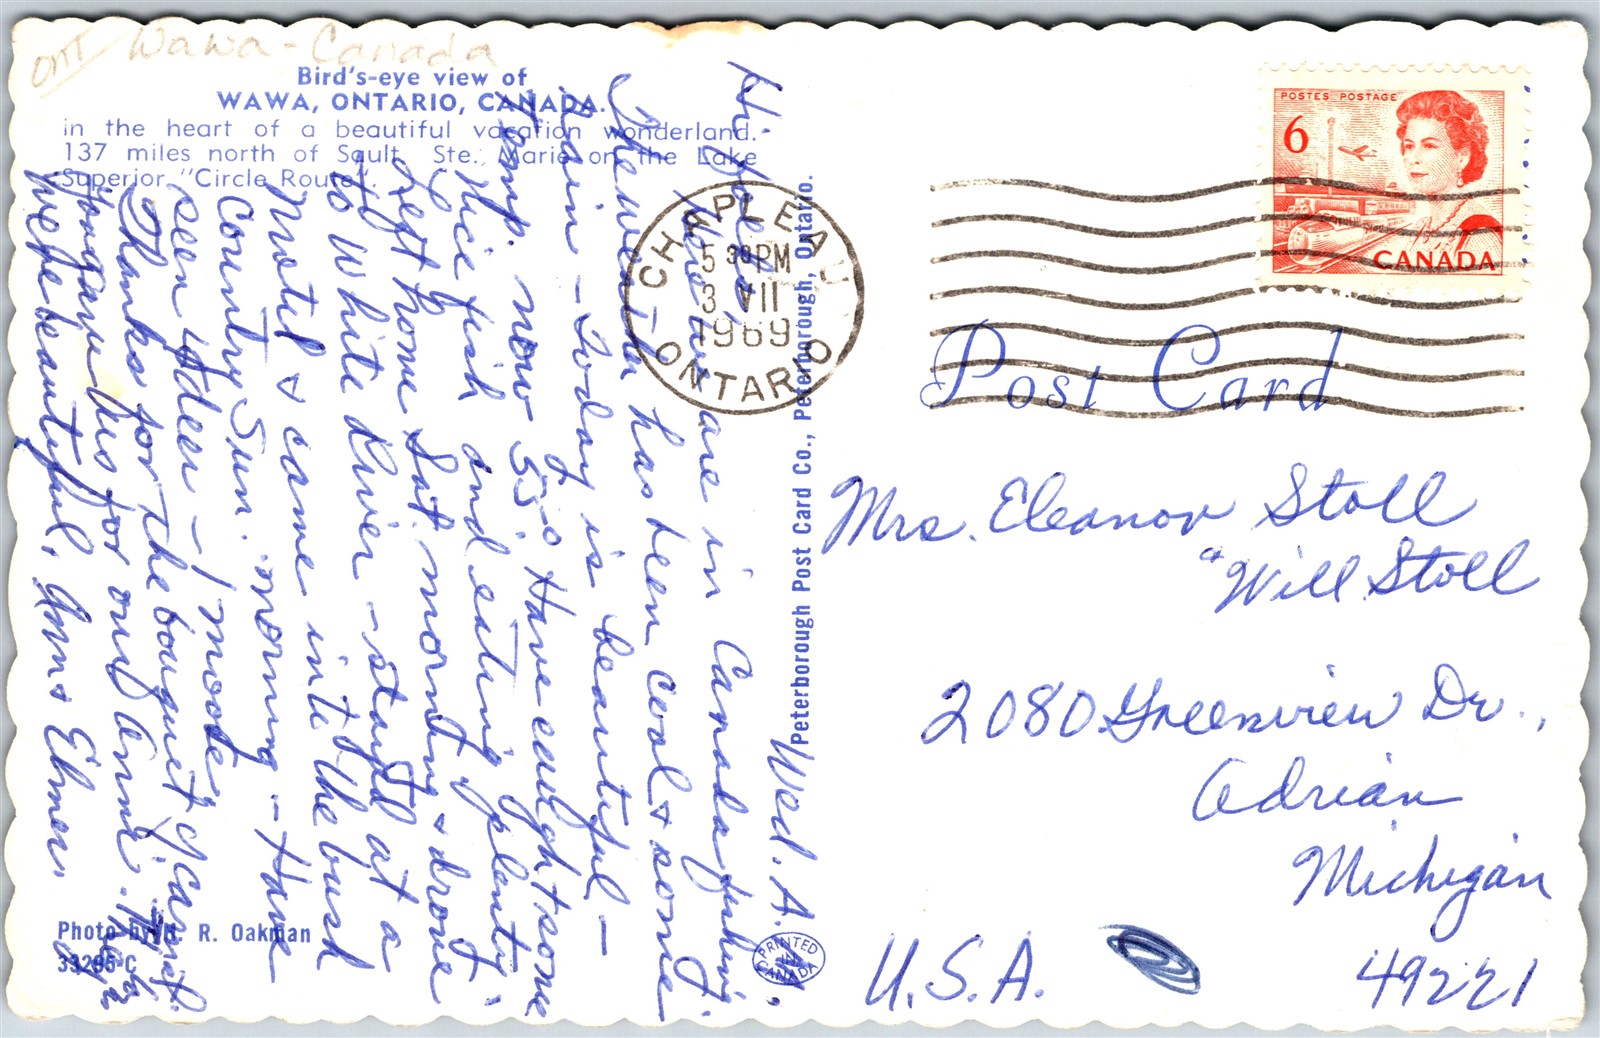 ONT Wawa - Canada
Bird's-eye view of
WAWA, ONTARIO, CANADA.
in the heart of a beautiful vacation wonderland.
137 miles north of Sault Ste. Marie on the Lake
Superior "Circle Route".
Wed. A.
Hi folks,
Here we are in Canada fishing.
The weather has been cool & some
rain - Today is beautiful -
Temp. now 55° Have caught some
nice fish and eating plenty.
Left home Sat. morning & drove
to White River - stayed at a
Motel & came into the bush
Country Sun. morning - Have
seen 4 deer - 1 moose
Thanks for the bouquet of carnat.
you gave us for our Anni.
were beautiful. Ann & Elmer
Photo by H. R. Oakman
33295-C
Peterborough Post Card Co., Peterborough, Ontario.
PRINTED IN CANADA
CHAPLEAU
5 30 PM
3 VII
1969
ONTARIO
POSTES POSTAGE
6
CANADA
Post Card
Mrs. Eleanor Stoll
" Will Stoll
2080 Greenview Dr.,
Adrian
Michigan
U.S.A. 49221